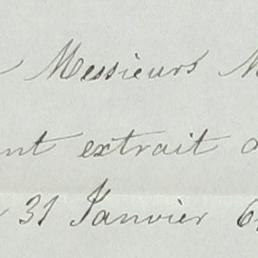 Messieurs
extrait
31 Janvier